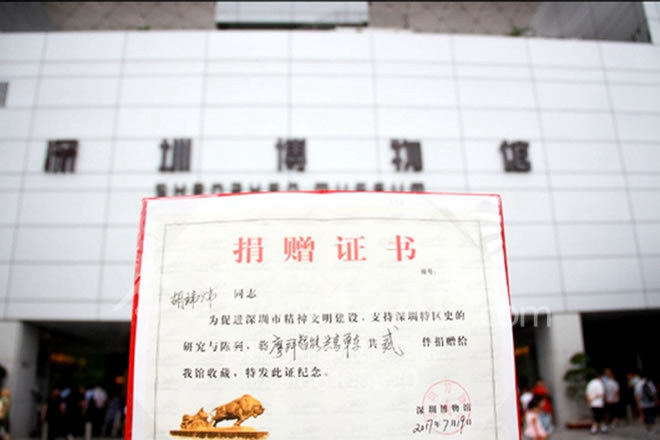 深圳博物馆
SHENZHEN MUSEUM
捐赠证书
编号:
胡玮炜 同志
为促进深圳市精神文明建设、支持深圳特区史的
研究与陈列,将摩拜智能共享单车共贰件捐赠给
我馆收藏,特发此证纪念。
深圳博物馆
2017年7月19日